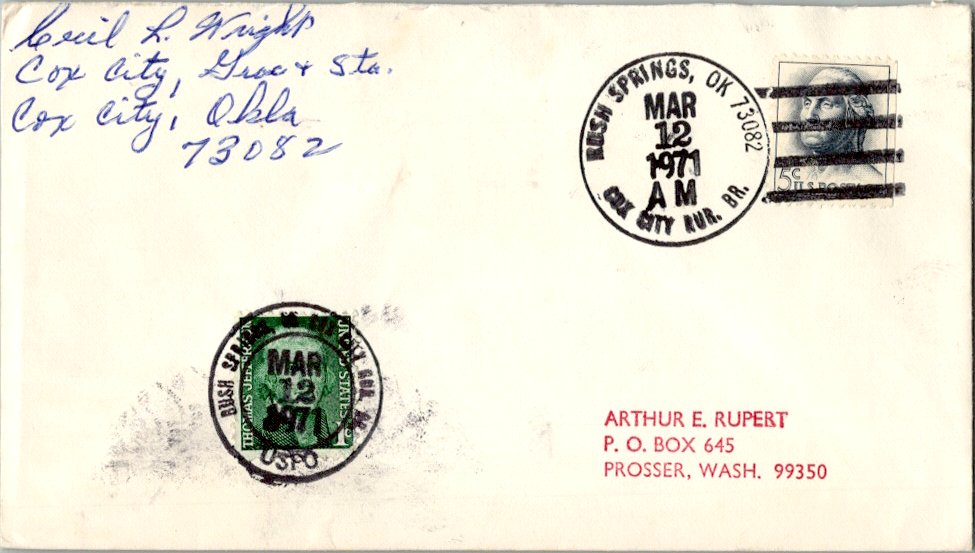 Cecil L. Wright
Cox City, Groc + Sta.
Cox City, Okla
73082
RUSH SPRINGS, OK 73082
MAR
12
1971
AM
COX CITY RUR. BR.
5c
U.S. POSTAGE
THOMAS JEFFERSON
UNITED STATES
1c
RUSH SPRINGS, OK COX CITY RUR. BR.
MAR
12
1971
USPO
ARTHUR E. RUPERT
P. O. BOX 645
PROSSER, WASH. 99350